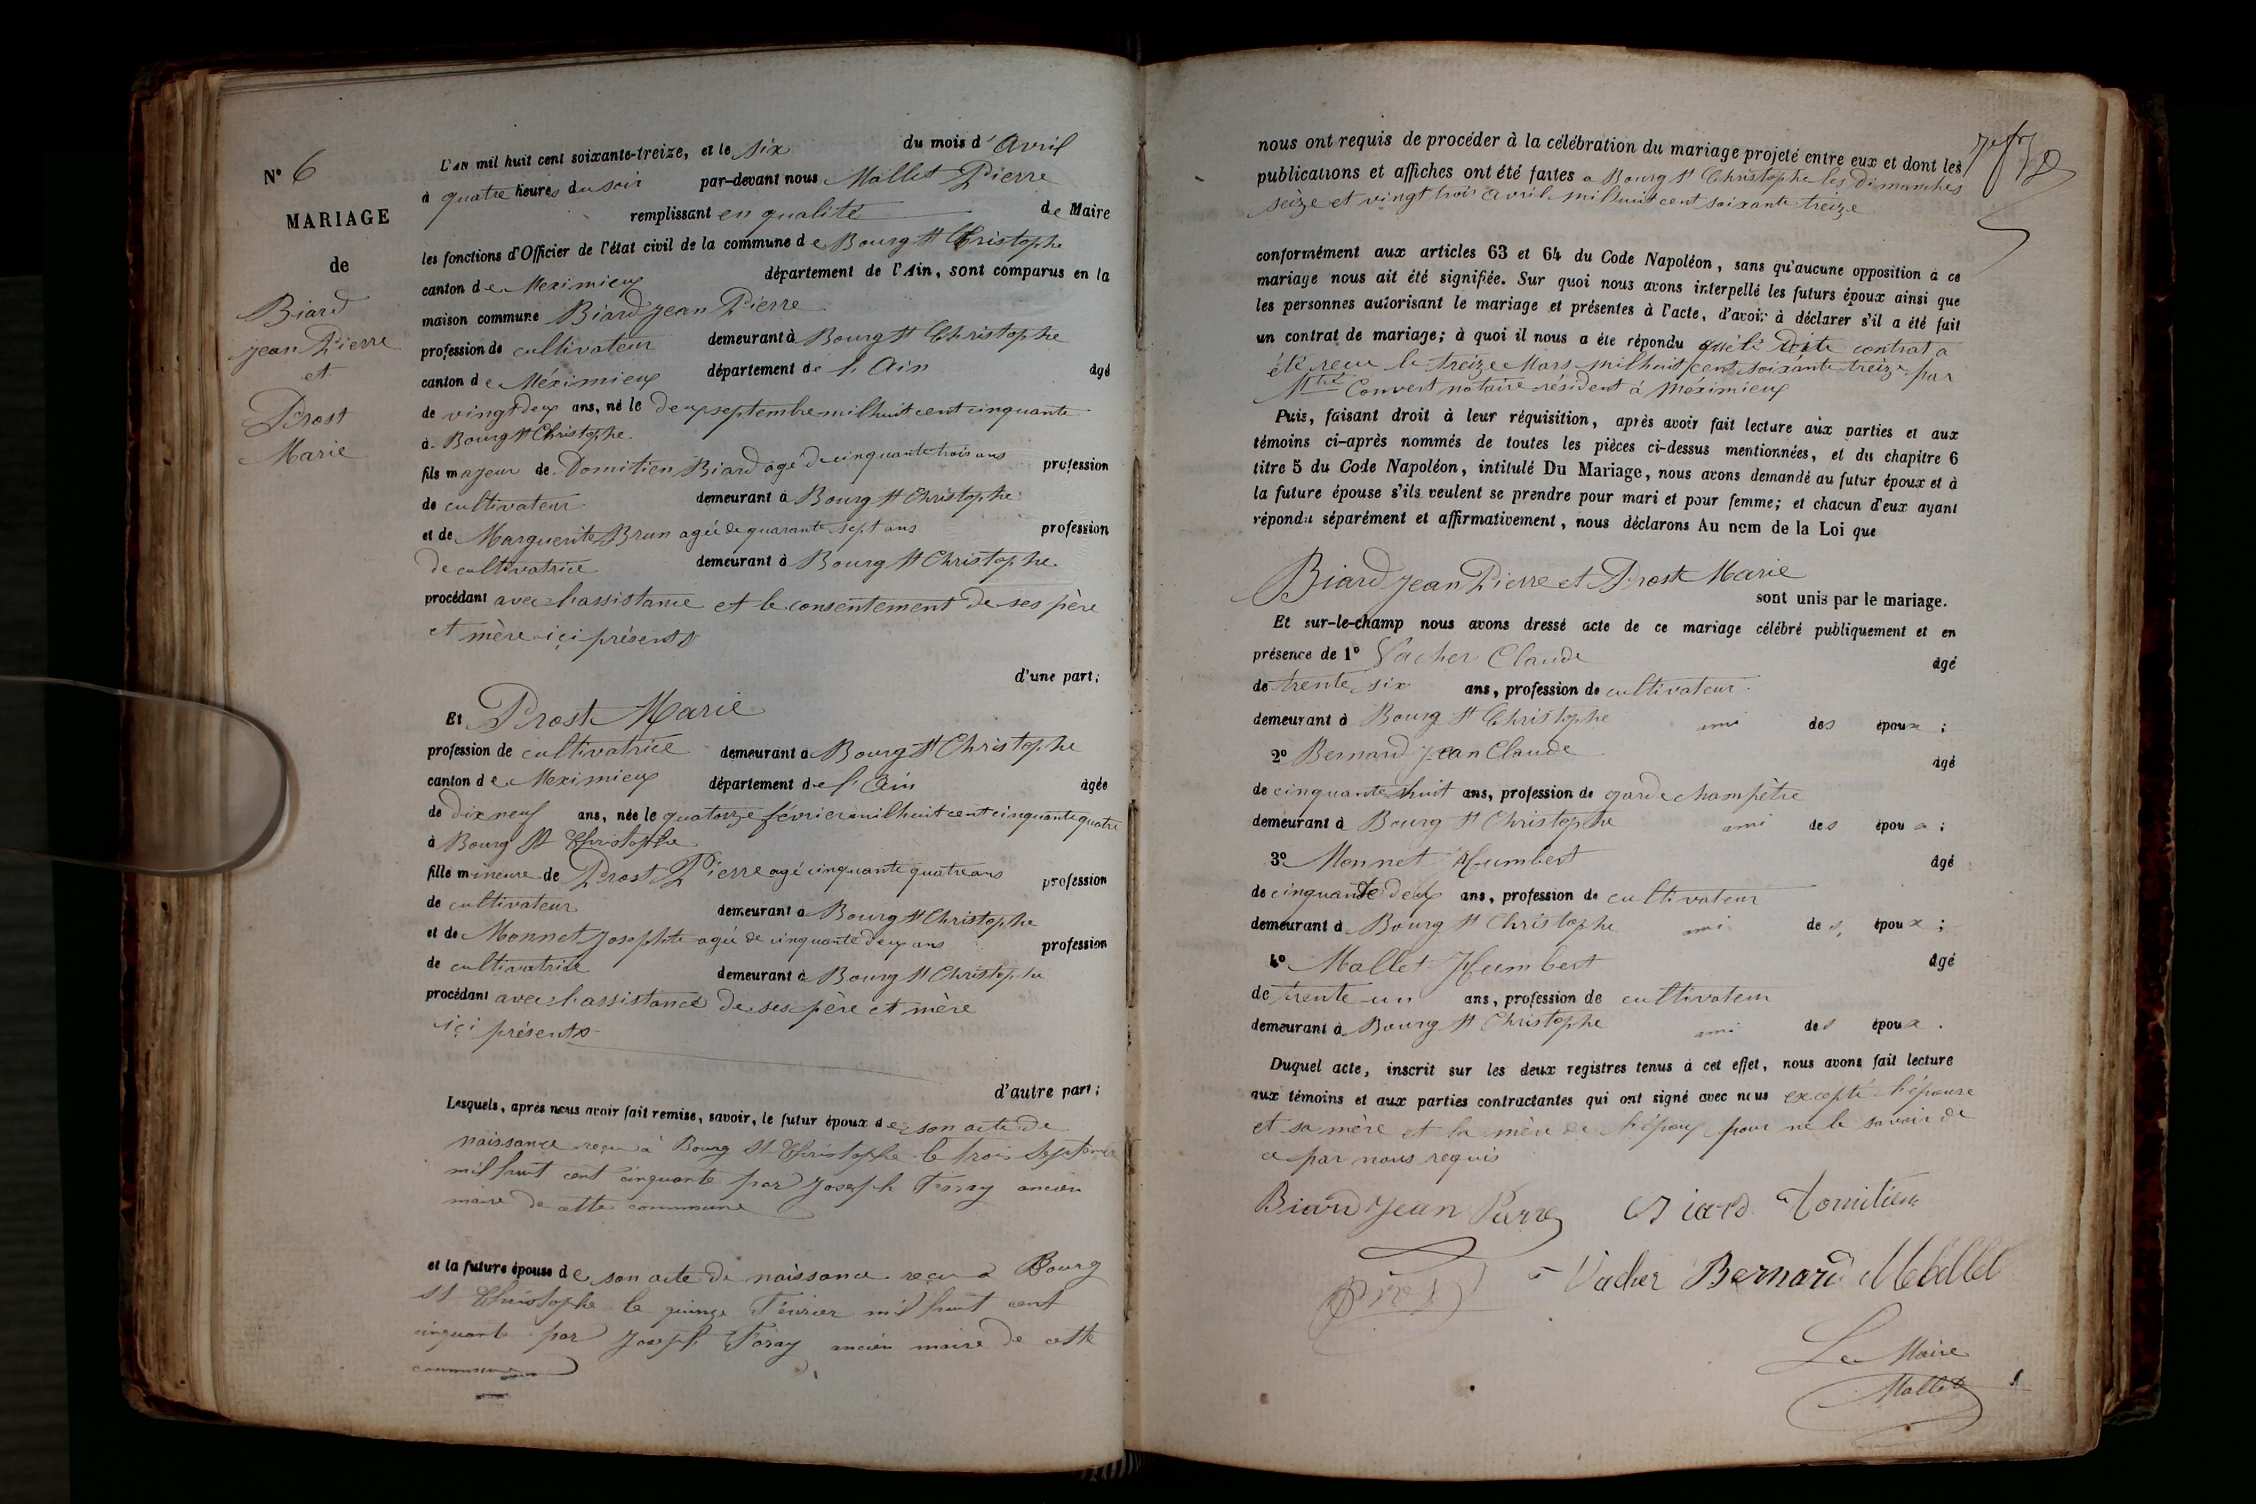 N° 6
MARIAGE
de
Biard
Jean Pierre
et
Prost
Marie
L'an mil huit cent soixante-treize, et le six du mois d'Avril
à quatre heures du soir par-devant nous Mallet Pierre
remplissant en qualité de Maire
les fonctions d'Officier de l'état civil de la commune de Bourg St Christophe
canton de Meximieux département de l'Ain, sont comparus en la
maison commune Biard Jean Pierre
profession de cultivateur demeurant à Bourg St Christophe
canton de Méximieux département de l'Ain âgé
de vingt deux ans, né le deux septembre mil huit cent cinquante
à Bourg St Christophe
fils majeur de Domitien Biard agé de cinquante trois ans profession
de cultivateur demeurant à Bourg St Christophe
et de Marguerite Brun agée de quarante sept ans profession
de cultivatrice demeurant à Bourg St Christophe
procédant avec l'assistance et le consentement de ses père
et mère içi présents
d'une part;
Et Prost Marie
profession de cultivatrice demeurant à Bourg St Christophe
canton de Meximieux département de l'Ain âgée
de dix neuf ans, née le quatorze février mil huit cent cinquante quatre
à Bourg St Christophe
fille mineure de Prost Pierre agé cinquante quatre ans profession
de cultivateur demeurant à Bourg St Christophe
et de Monnet Josephte agée de cinquante deux ans profession
de cultivatrice demeurant à Bourg St Christophe
procédant avec l'assistance de ses père et mère
içi présents
d'autre part;
Lesquels, après nous avoir fait remise, savoir, le futur époux de son acte de
naissance reçu à Bourg St Christophe le trois Septembre
mil huit cent cinquante par Joseph Foray ancien
maire de cette commune
et la future épouse de son acte de naissance reçu à Bourg
St Christophe le quinze Février mil huit cent
cinquante par Joseph Foray ancien maire de cette
commune
nous ont requis de procéder à la célébration du mariage projeté entre eux et dont les
publications et affiches ont été faites à Bourg St Christophe les dimanches
seize et vingt trois avril mil huit cent soixante treize
conformément aux articles 63 et 64 du Code Napoléon, sans qu'aucune opposition à ce
mariage nous ait été signifiée. Sur quoi nous avons interpellé les futurs époux ainsi que
les personnes autorisant le mariage et présentes à l'acte, d'avoir à déclarer s'il a été fait
un contrat de mariage; à quoi il nous a été répondu que le dite contrat a
été reçu le treize Mars mil huit cent soixante treize par
Convert notaire résident à Méximieux
Puis, faisant droit à leur réquisition, après avoir fait lecture aux parties et aux
témoins ci-après nommés de toutes les pièces ci-dessus mentionnées, et du chapitre 6
titre 5 du Code Napoléon, intitulé Du Mariage, nous avons demandé au futur époux et à
la future épouse s'ils veulent se prendre pour mari et pour femme; et chacun d'eux ayant
répondu séparément et affirmativement, nous déclarons Au nom de la Loi que
Biard Jean Pierre et Prost Marie
sont unis par le mariage.
Et sur-le-champ nous avons dressé acte de ce mariage célébré publiquement et en
présence de 1° Vacher Claude âgé
de trente six ans, profession de cultivateur
demeurant à Bourg St Christophe ami des époux ;
2° Bernard Jean Claude âgé
de cinquante huit ans, profession de garde champêtre
demeurant à Bourg St Christophe ami des époux ;
3° Monnet Humbert âgé
de cinquante deux ans, profession de cultivateur
demeurant à Bourg St Christophe ami des époux ;
4° Mallet Humbert âgé
de trente un ans, profession de cultivateur
demeurant à Bourg St Christophe ami des époux .
Duquel acte, inscrit sur les deux registres tenus à cet effet, nous avons fait lecture
aux témoins et aux parties contractantes qui ont signé avec nous excepté l'épouse
et sa mère et la mère de l'époux pour ne le savoir de
ce par nous requis
Biard Jean Pierre Biard Domitien
Vacher Bernard Mallet
Le Maire
Mallet